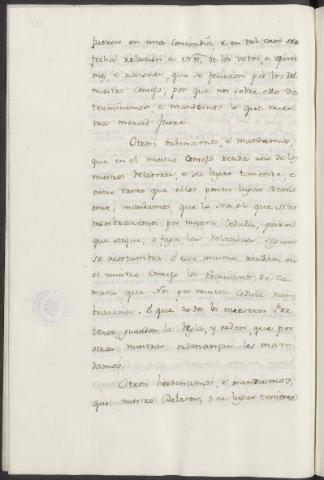 fueren en una Concordia, e en tal caso sea
fecha relacion a Nos, de los votos, e opinio
nes, e razones, que se ficieren por los del
nuestro Consejo, por que nos sobre ello de
terminemos e mandemos lo que nues
tra merced fuere.
Otrosi ordenamos, e mandamos,
que en el nuestro Consejo resida uno de los
nuestros Relatores, o su lugar teniente, e
entre tanto que ellos ponen lugar Theni
ente, mandamos que lo sea el que Nos
nombraremos por nuestra Cedula, para
que saque, e faga las relaciones segund
se acostumbra. E eso mismo residan en
el nuestro Consejo los Escrivanos de Ca
mara que Nos por nuestra Cedula nom
braremos. E que todos los nuestros
guarden la regla, y orden, que por
otras nuestras ordenanzas les man
damos.
Otrosi hordenamos, e mandamos,
quel nuestro Relator, o su lugar teniente